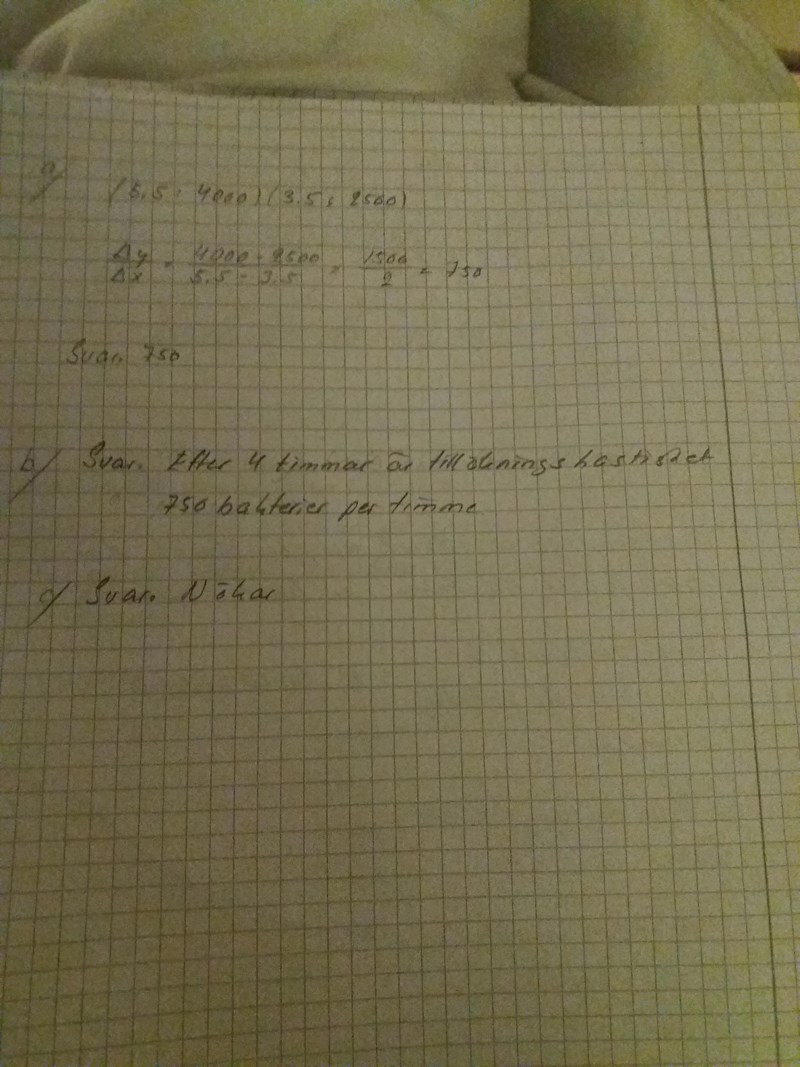 a/
(5.5 ; 4000) (3.5 ; 2500)
Δy/Δx = 4000 - 2500/5.5 - 3.5 = 1500/2 = 750
Svar. 750
b/ Svar. Efter 4 timmar är tillökningshastighet
750 bakterier per timme
c/ Svar. N ökar